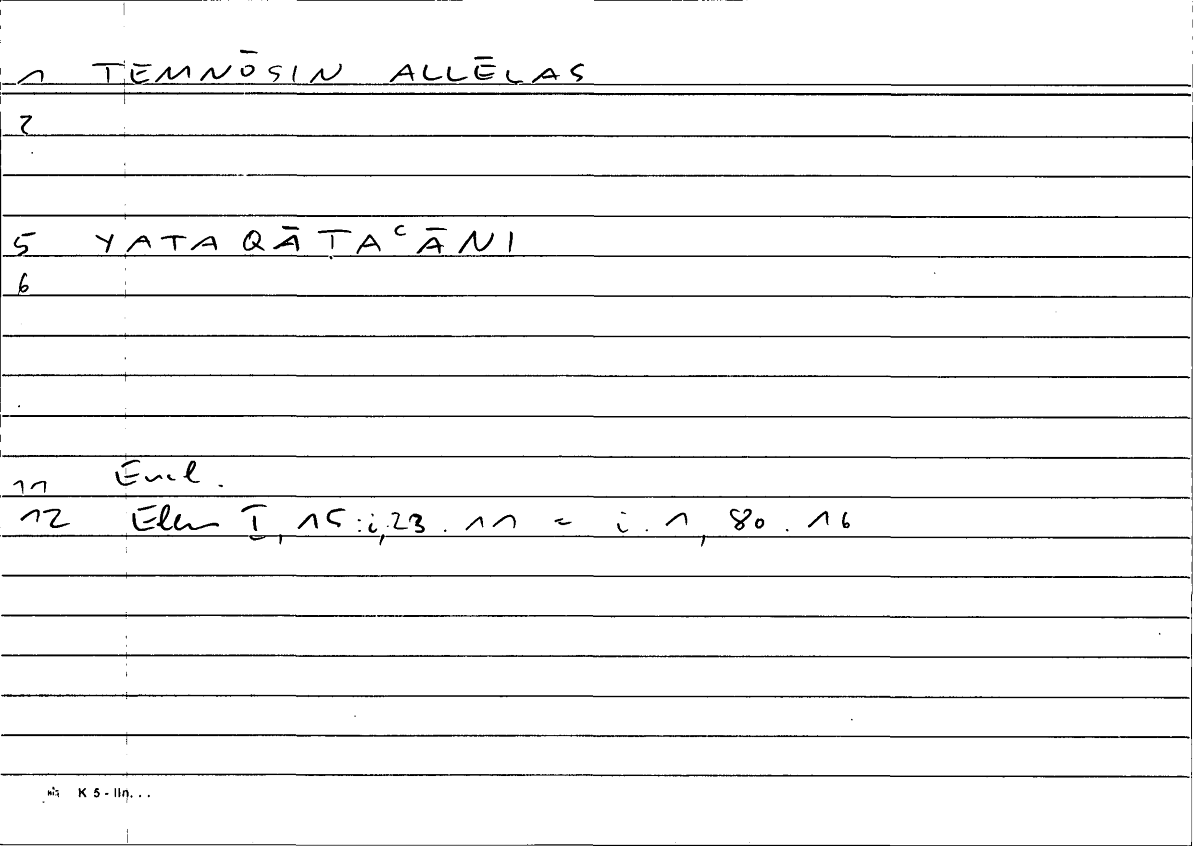 1 TEMNŌSIN ALLĒLAS
2
5 YATAQĀṬAᶜĀNI
6
11 Eucl.
12 Elem I, 15 : i, 23 . 11 = i . 1, 80 . 16
K 5 - lin...